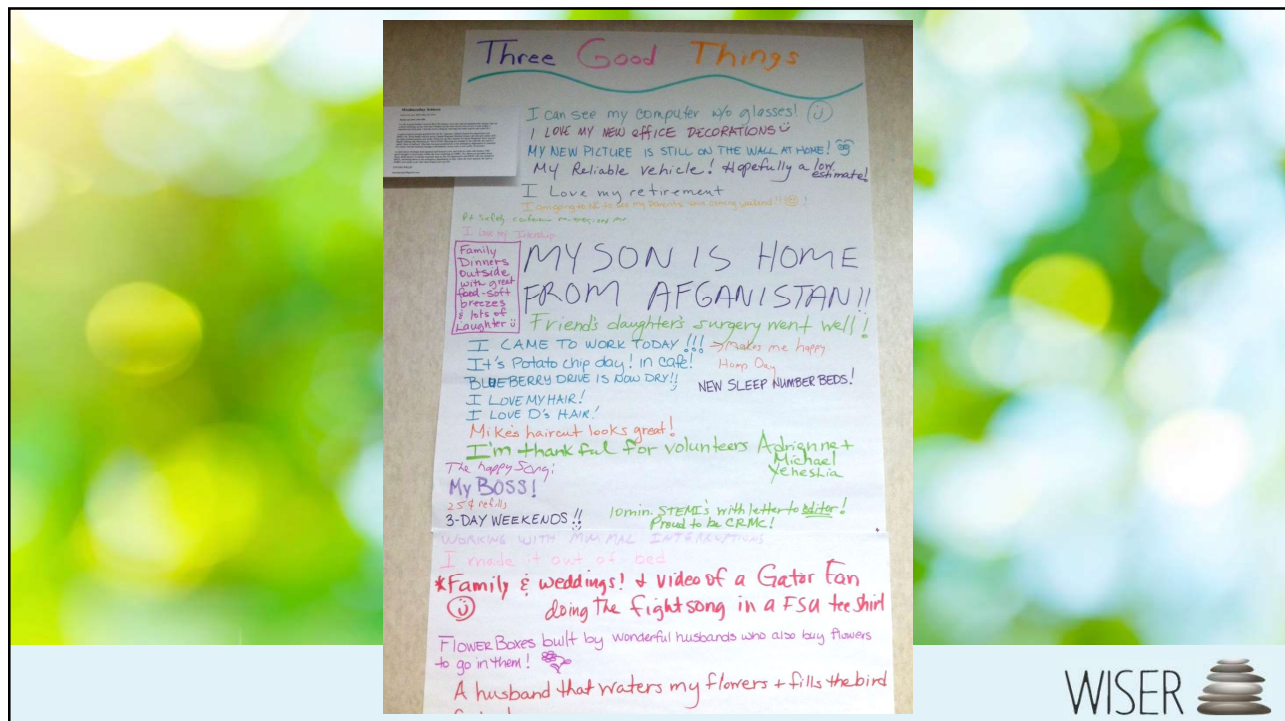 Three Good Things
I can see my computer w/o glasses!
I LOVE MY NEW OFFICE DECORATIONS
MY NEW PICTURE IS STILL ON THE WALL AT HOME!
My Reliable Vehicle! Hopefully a low
estimate!
I Love my retirement
I am going to NC to see my parents this coming weekend!!!
Pt Safety
I love my
Family
Dinners
outside
with great
food-soft
breezes
& lots of
Laughter
MY SON IS HOME
FROM AFGANISTAN!!
Friend's daughter's surgery went well!
I CAME TO WORK TODAY!!! → Makes me happy
It's Potato chip day! in café!
Hump Day
BLUEBERRY DRIVE IS NOW DRY!!
NEW SLEEP NUMBER BEDS!
I LOVE MY HAIR!
I LOVE D's HAIR!
Mike's haircut looks great!
I'm thankful for volunteers Adrianne +
Michael
Yeheshia
The happy song!
My BOSS!
25¢ refills
3-DAY WEEKENDS!!
10 min. STEMI's with letter to editor!
Proud to be CRMC!
WORKING WITH MINIMAL INTERRUPTIONS
I made it out of bed
*Family & weddings! & video of a Gator Fan
doing the fight song in a FSU tee shirt
FLOWER BOXES built by wonderful husbands who also buy flowers
to go in them!
A husband that waters my flowers + fills the bird
WISER